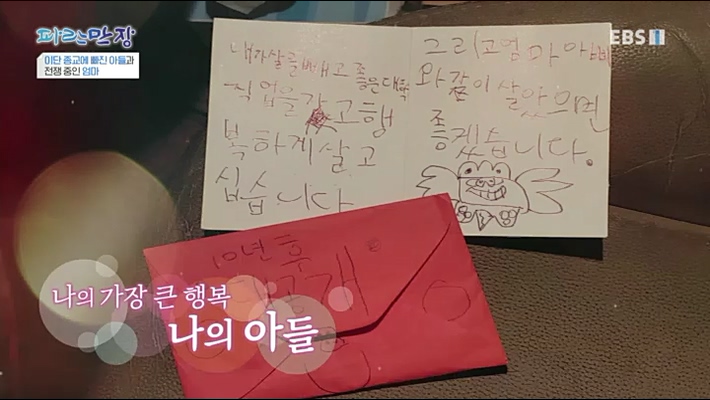 파란만장
이단 종교에 빠진 아들과
전쟁 중인 엄마
EBS 1
내가 살을 빼고 좋은 대학
직업을 갖고 행
복하게 살고
십습니다
그리고 엄마 아빠
와 같이 살았으면
좋겠습니다.
10년 후
공개
나의 가장 큰 행복
나의 아들